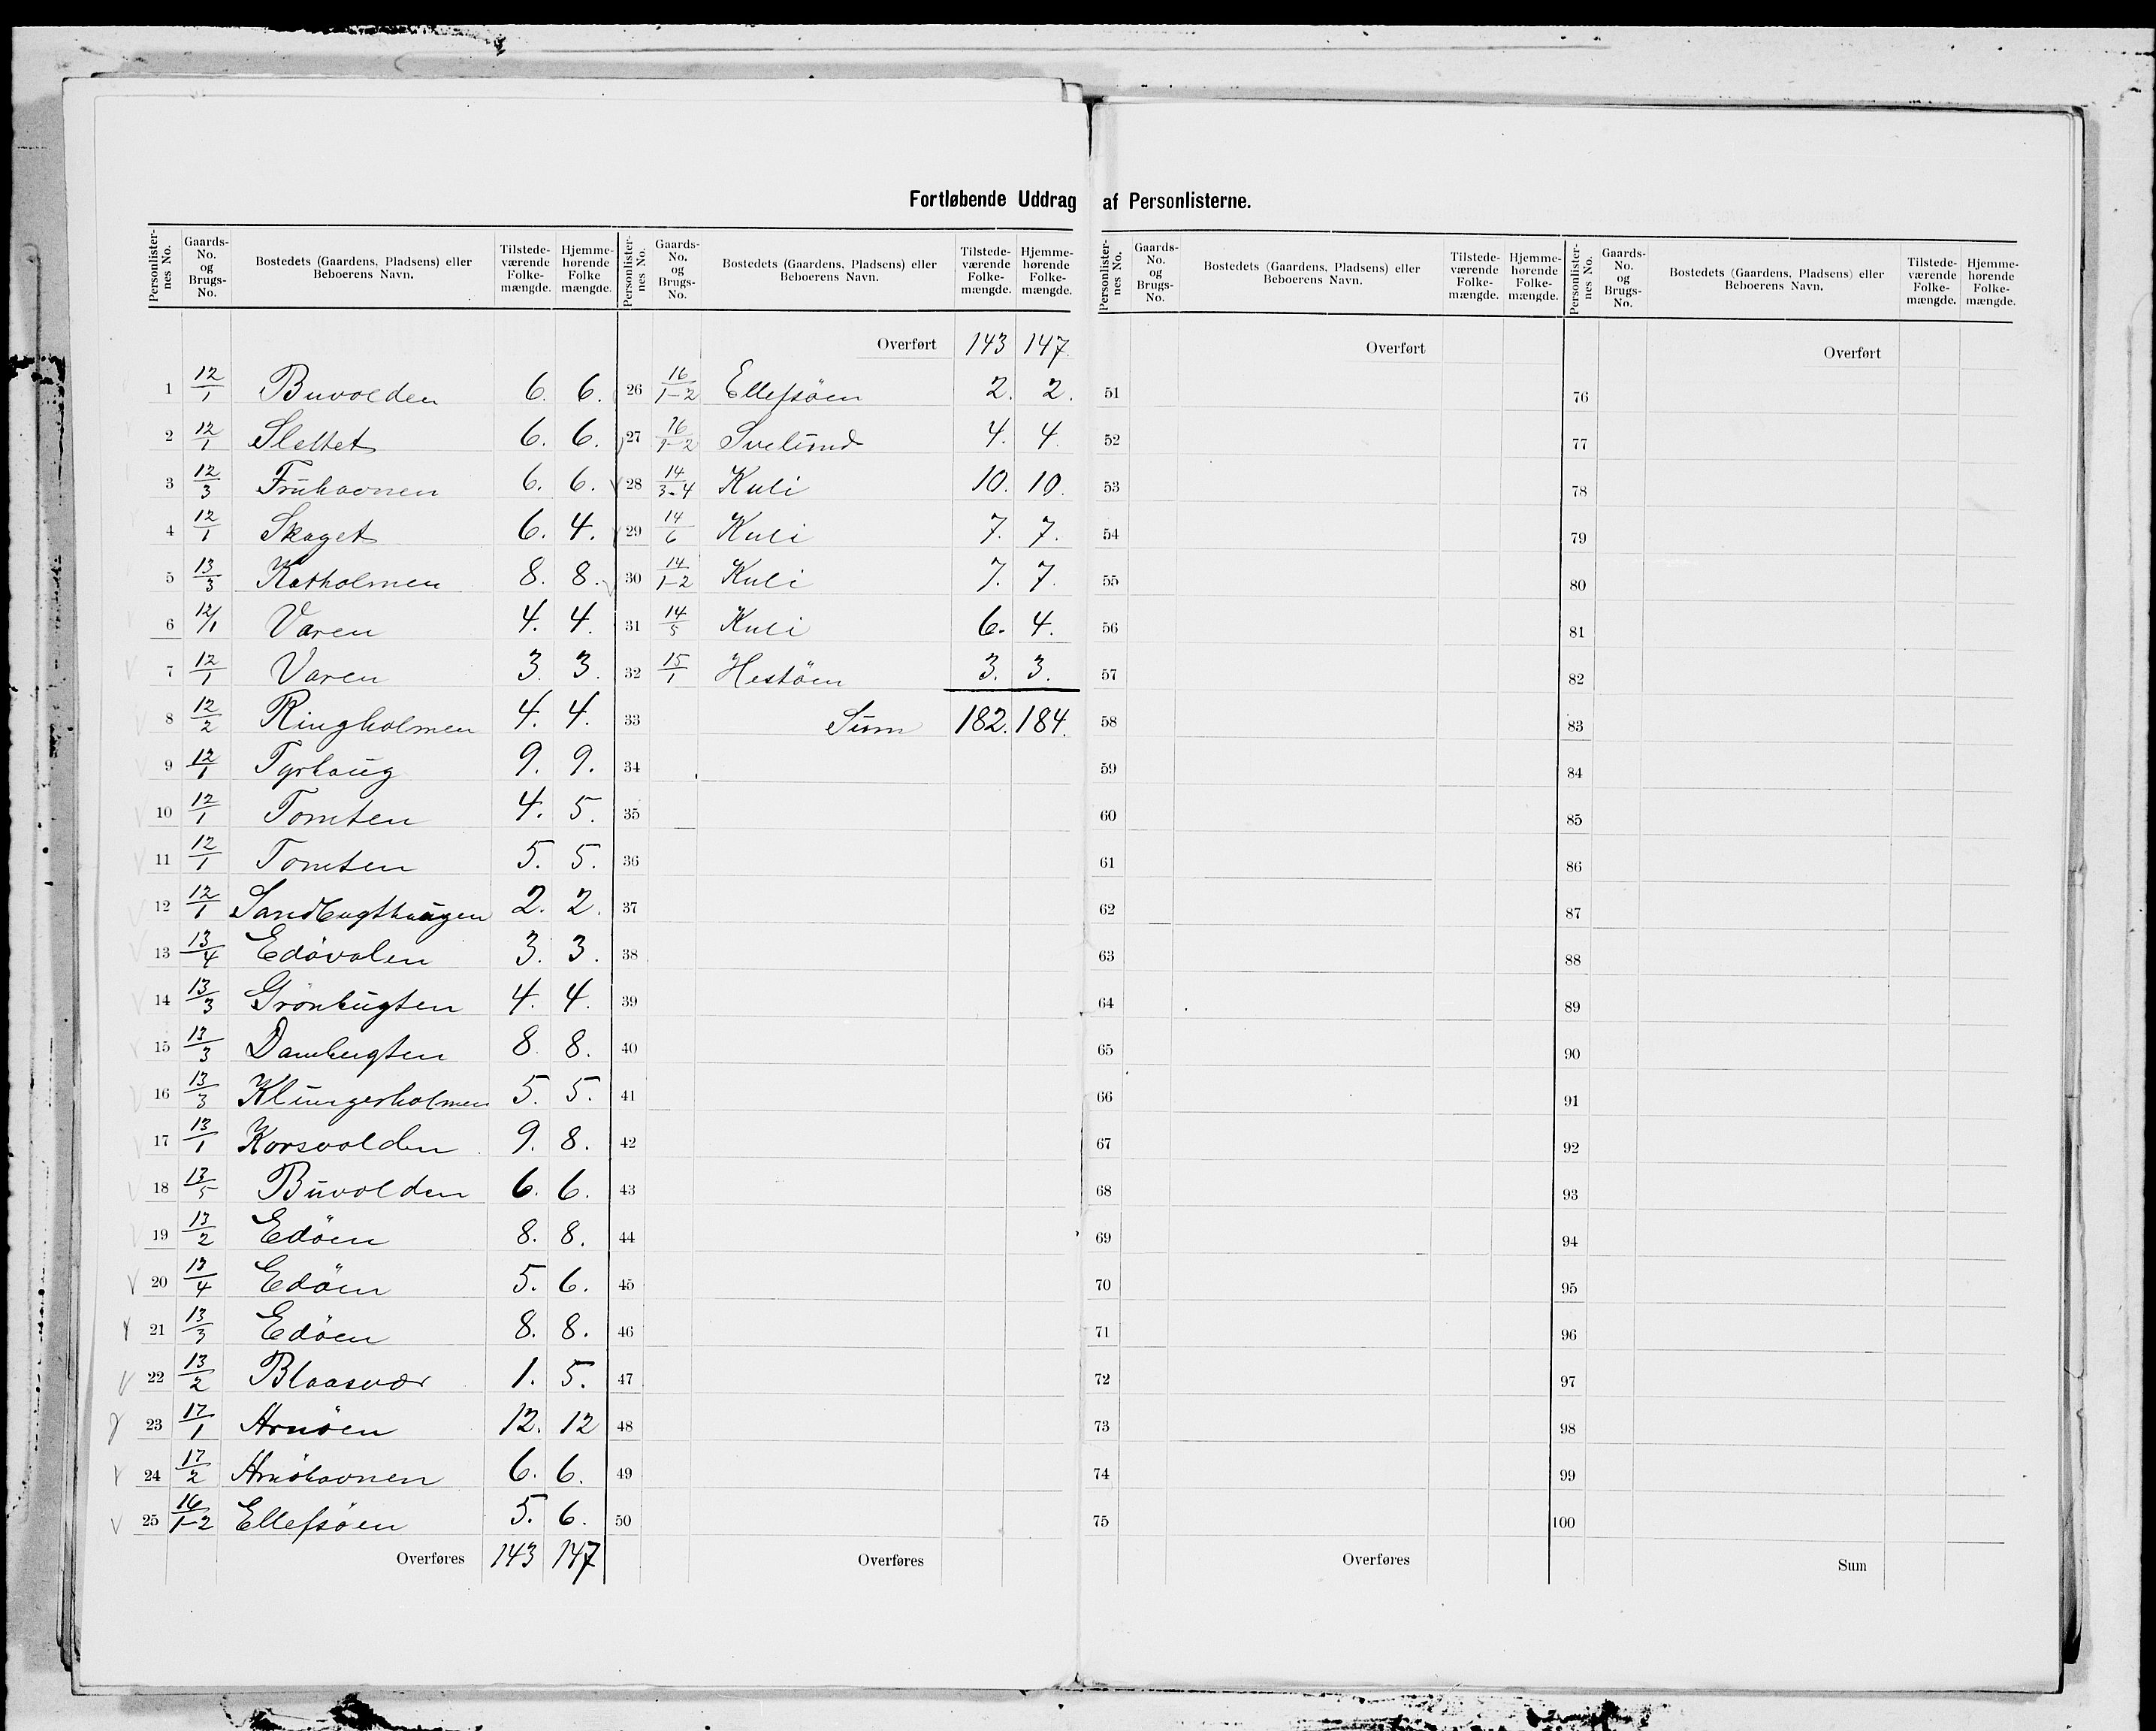 Fortløbende Uddrag af Personlisterne.
Personlisternes No. Gaards-No. og Brugs-No. Bostedets (Gaardens, Pladsens) eller Beboerens Navn. Tilstedeværende Folkemængde. Hjemmehørende Folkemængde.
1 12/1 Buvolden 6. 6.
2 12/1 Slettet 6. 6.
3 12/3 Fruhavnen 6. 6.
4 12/1 Skaget 6. 4.
5 13/3 Ratholmen 8. 8.
6 12/1 Varen 4. 4.
7 12/1 Varen 3. 3.
8 12/2 Ringholmen 4. 4.
9 12/1 Tyrhaug 9. 9.
10 12/1 Tomten 4. 5.
11 12/1 Tomten 5. 5.
12 12/1 Sandbugthaugen 2. 2.
13 13/4 Edövalen 3. 3.
14 13/3 Grönbugten 4. 4.
15 13/3 Dambugten 8. 8.
16 13/3 Klungerholmen 5. 5.
17 13/1 Korsvolden 9. 8.
18 13/5 Buvolden 6. 6.
19 13/2 Edöen 8. 8.
20 13/4 Edöen 5. 6.
21 13/3 Edöen 8. 8.
22 13/2 Blaasvær 1. 5.
23 17/1 Arnöen 12. 12
24 17/2 Arnöhavnen 6. 6.
25 16/1-2 Ellefsöen 5. 6.
Overføres 143 147
Personlisternes No. Gaards-No. og Brugs-No. Bostedets (Gaardens, Pladsens) eller Beboerens Navn. Tilstedeværende Folkemængde. Hjemmehørende Folkemængde.
Overført 143 147.
26 16/1-2 Ellefsöen 2. 2.
27 16/1-2 Svelund 4. 4.
28 14/3-4 Kuli 10. 10.
29 14/6 Kuli 7. 7.
30 14/1-2 Kuli 7. 7.
31 14/5 Kuli 6. 4.
32 15/1 Hestöen 3. 3.
33 Sum 182. 184.
34
35
36
37
38
39
40
41
42
43
44
45
46
47
48
49
50
Overføres
Personlisternes No. Gaards-No. og Brugs-No. Bostedets (Gaardens, Pladsens) eller Beboerens Navn. Tilstedeværende Folkemængde. Hjemmehørende Folkemængde.
Overført
51
52
53
54
55
56
57
58
59
60
61
62
63
64
65
66
67
68
69
70
71
72
73
74
75
Overføres
Personlisternes No. Gaards-No. og Brugs-No. Bostedets (Gaardens, Pladsens) eller Beboerens Navn. Tilstedeværende Folkemængde. Hjemmehørende Folkemængde.
Overført
76
77
78
79
80
81
82
83
84
85
86
87
88
89
90
91
92
93
94
95
96
97
98
99
100
Sum